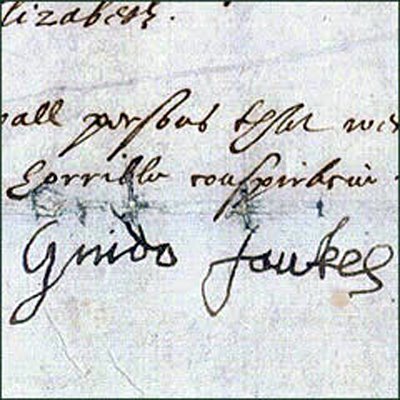 lizabeth.
all persons that wer
horrible conspiracie
Guido fawkes